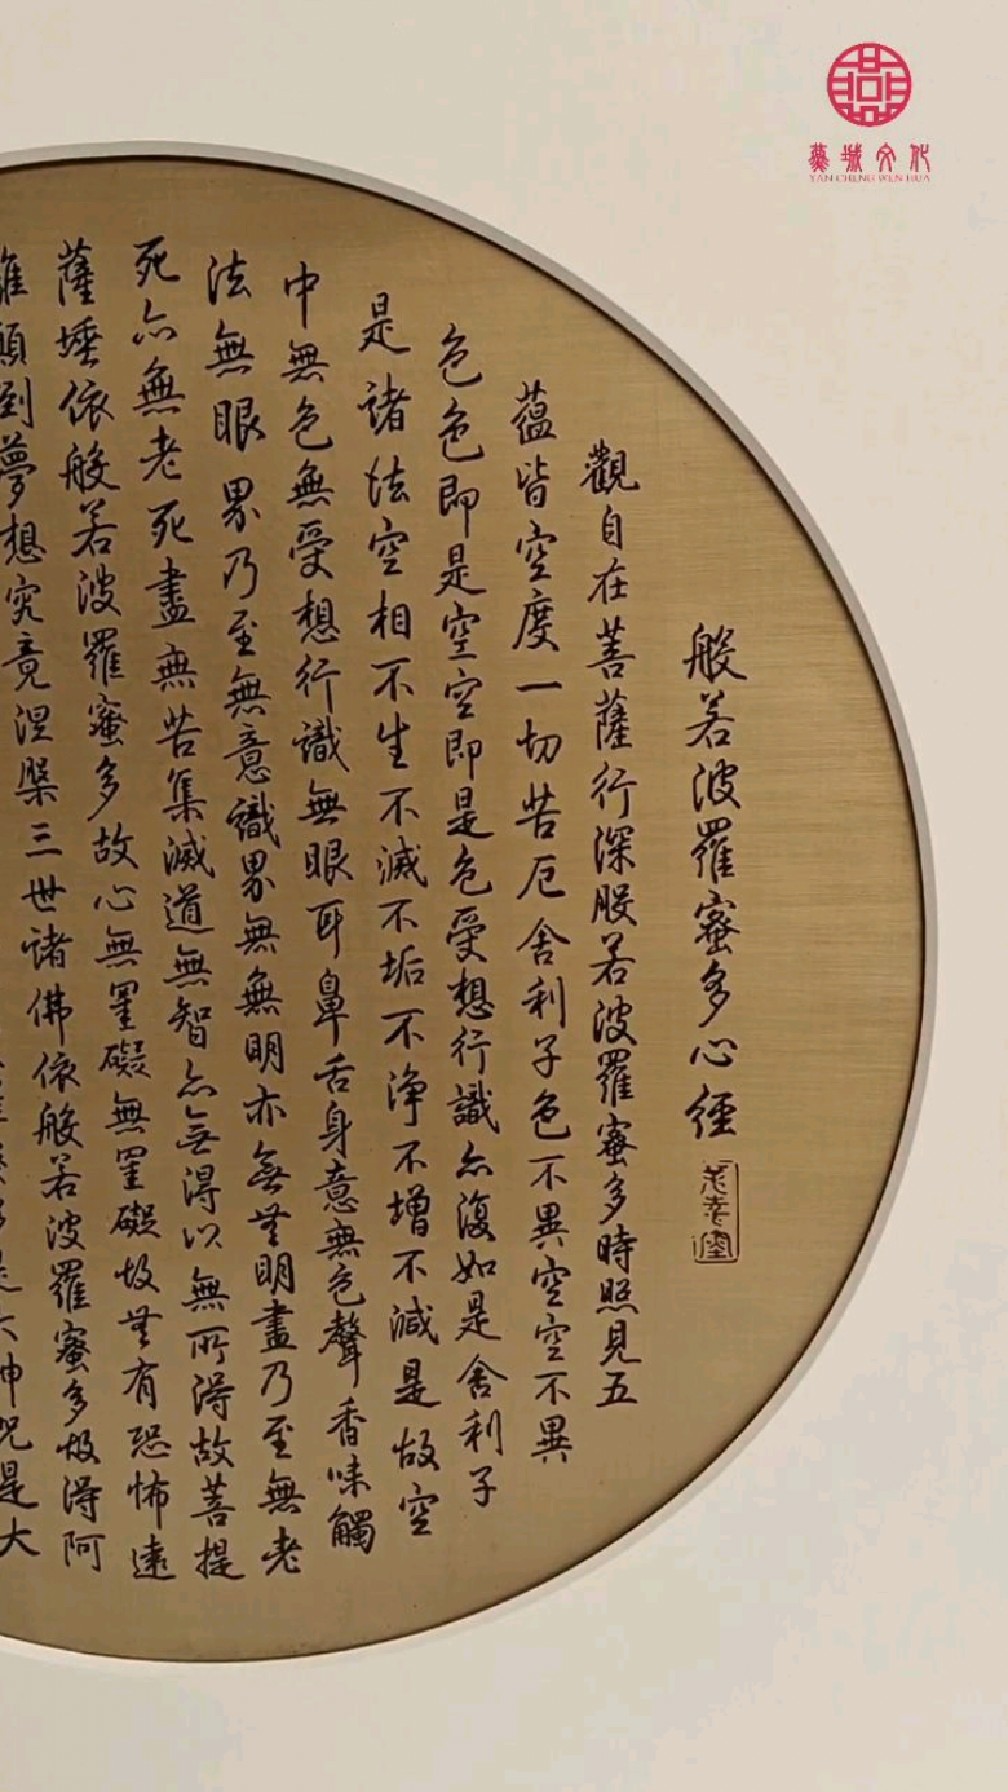 般若波羅蜜多心經
觀自在菩薩行深般若波羅蜜多時照見五
蘊皆空度一切苦厄舍利子色不異空空不異
色色即是空空即是色受想行識亦復如是舍利子
是諸法空相不生不滅不垢不淨不增不減是故空
中無色無受想行識無眼耳鼻舌身意無色聲香味觸
法無眼界乃至無意識界無無明亦無無明盡乃至無老
死亦無老死盡無苦集滅道無智亦無得以無所得故菩提
薩埵依般若波羅蜜多故心無罣礙無罣礙故無有恐怖遠
離顛倒夢想究竟涅槃三世諸佛依般若波羅蜜多故得阿
神咒是大
燕城文化
YAN CHENG WEN HUA